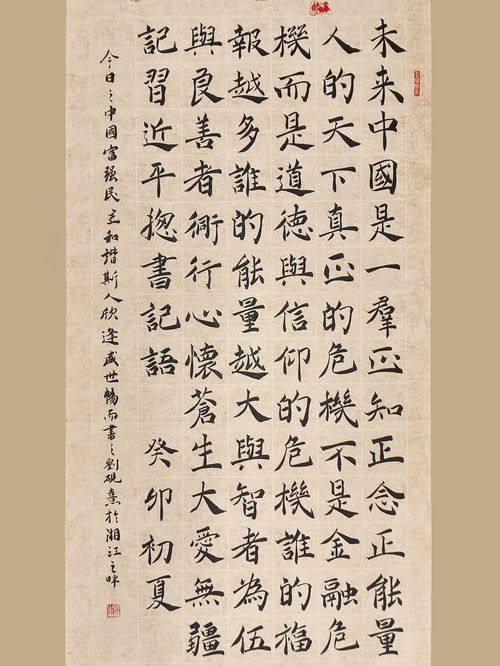 未来中國是一羣正知正念正能量
人的天下真正的危機不是金融危
機而是道德與信仰的危機誰的福
報越多誰的能量越大與智者為伍
與良善者衕行心懷蒼生大愛無疆
記習近平揔書記語 癸卯初夏
今日之中國富强民主和諧斯人欣逢盛世暢而書之劉硯於湘江之畔